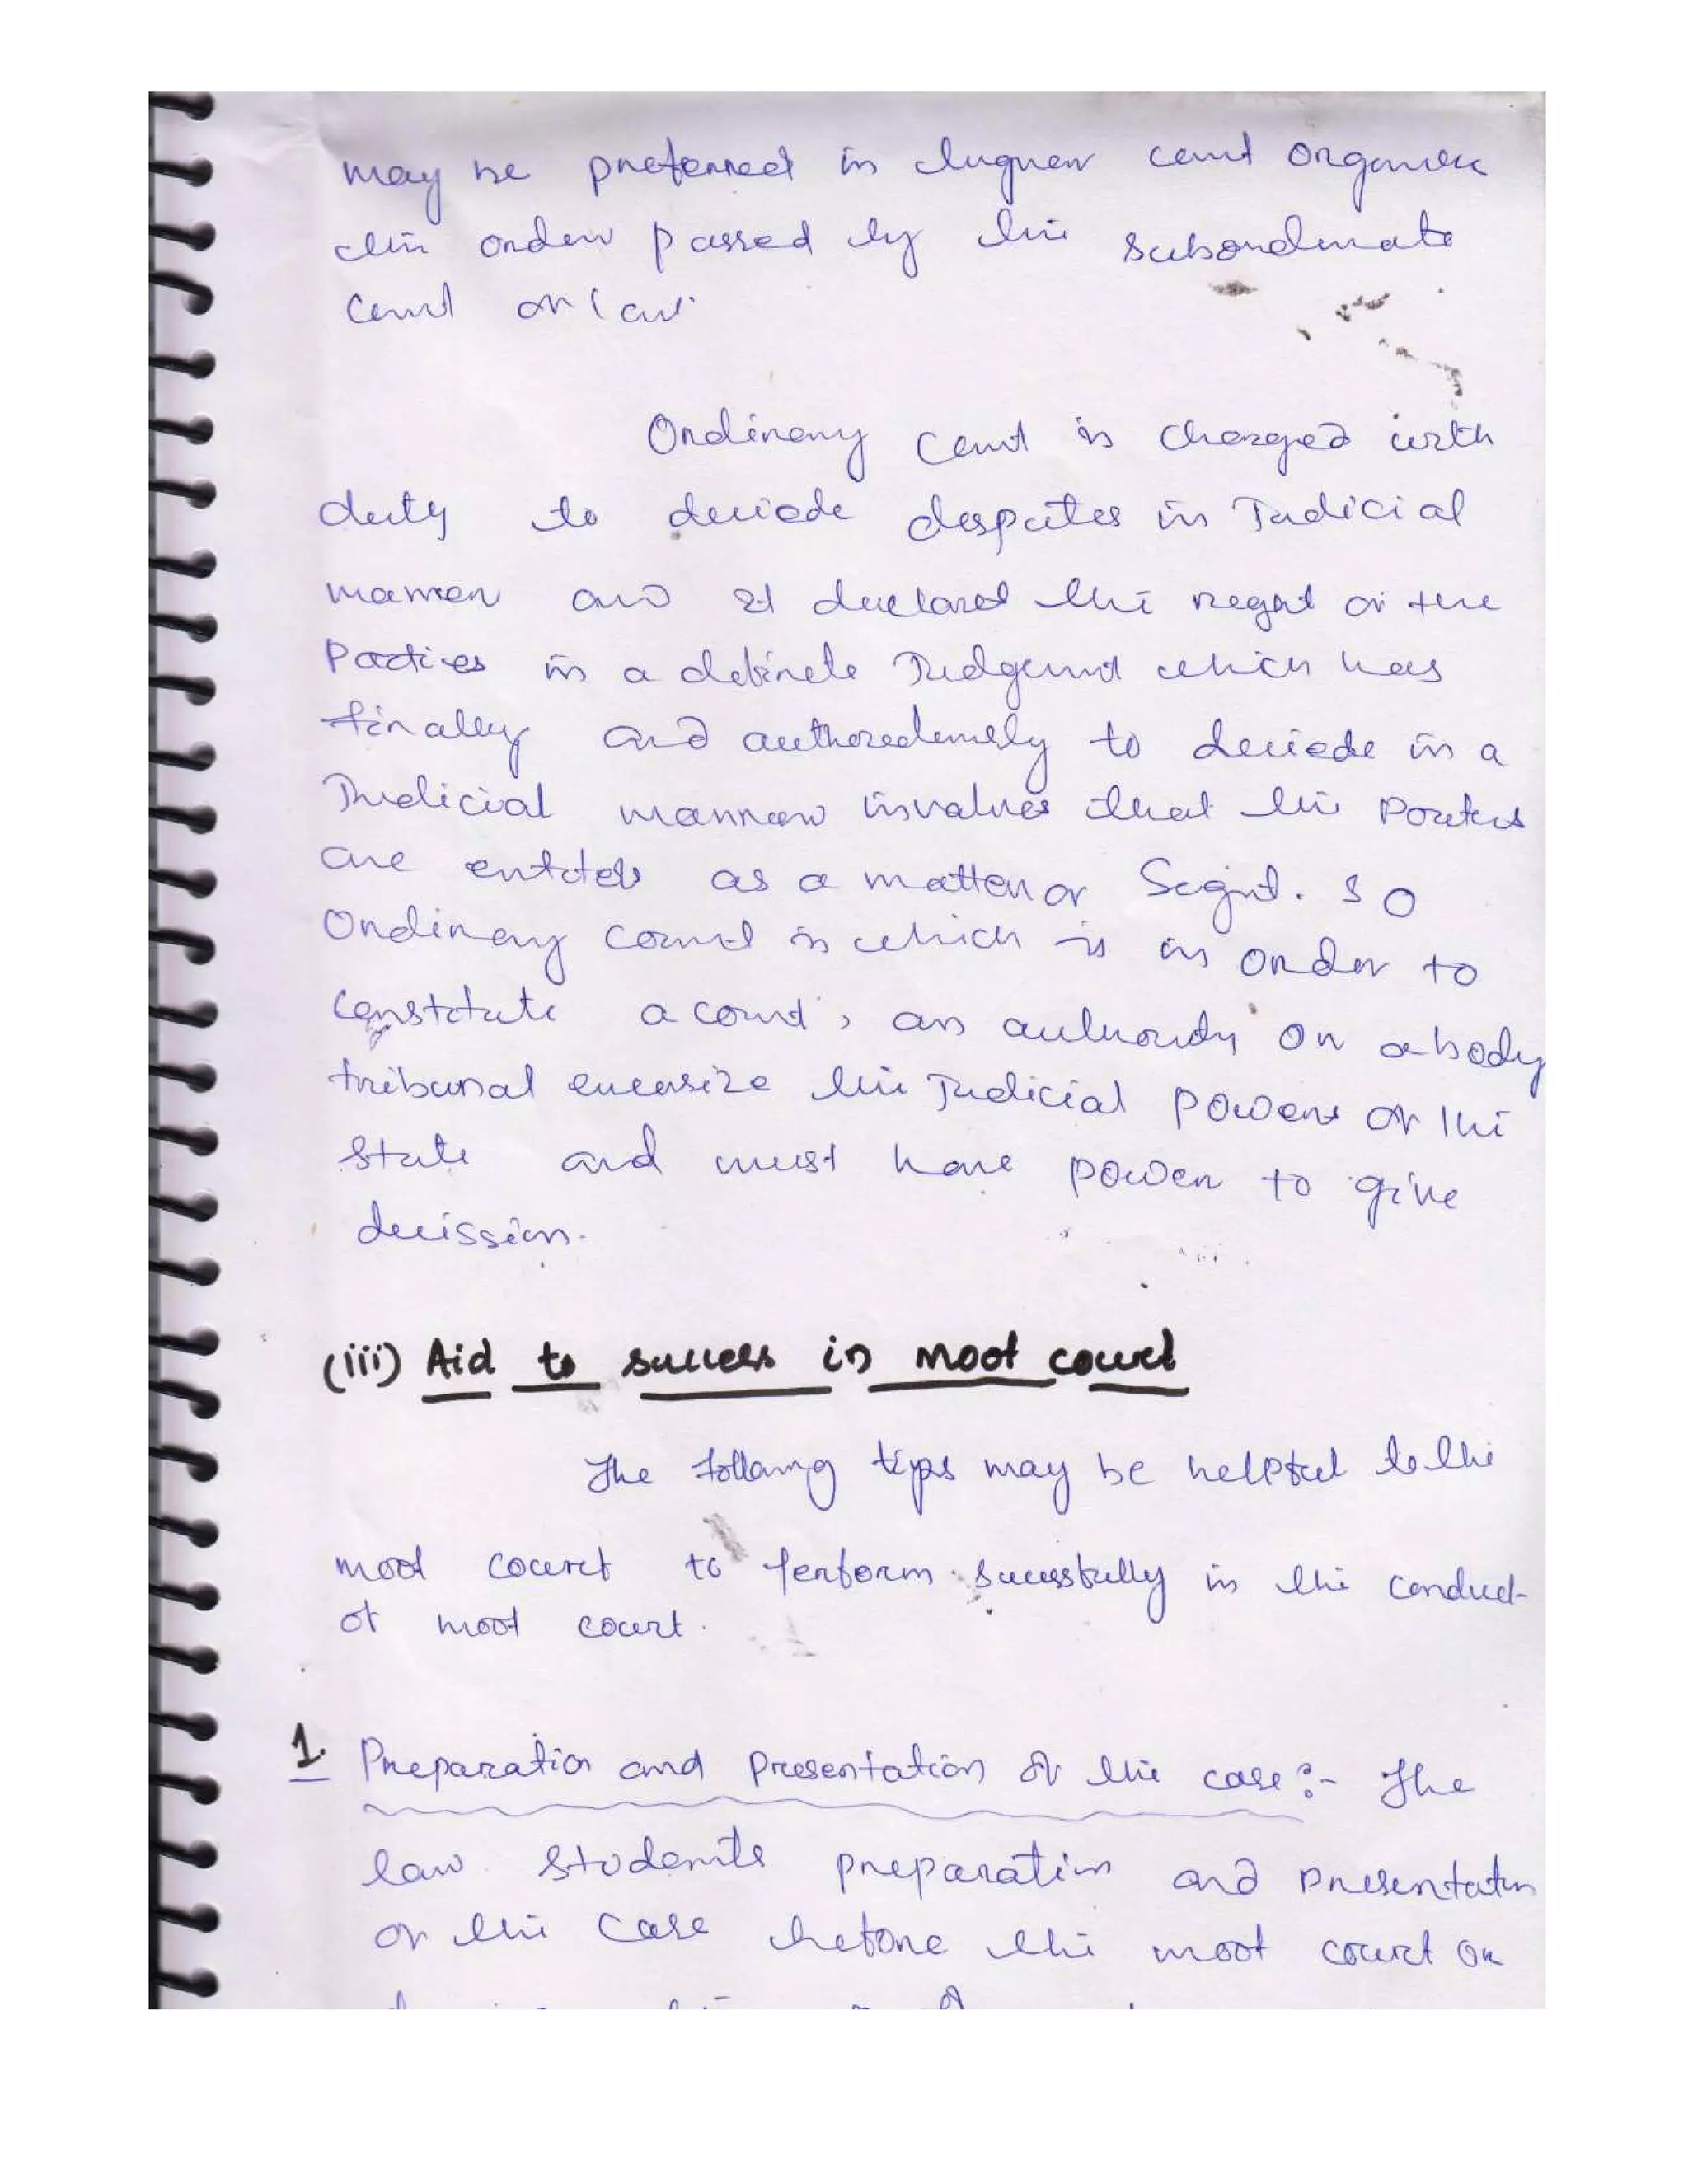 may be preferred in higher court
order passed by the subordinate
court of law.
Ordinary court is charged with
duty to deciede desputes in Judicial
manner and it declared the reght of the
Parties in a definete Judgement which has
finalley and to deciede in a
Judicial manner involves that the
are as a matter of So
Ordinary court is which is in order to
constetute a court, an authority or a body
tribunal the Judicial powers of the
State and must have power to give
decission.
(iii) Aid to success in moot court
The following tips may be helpful to the
moot court to perform sucessfully in the conduct
of moot court.
1. Preparation and presentation of the case:- The
law students preparation and presentation
of the case before the moot court or